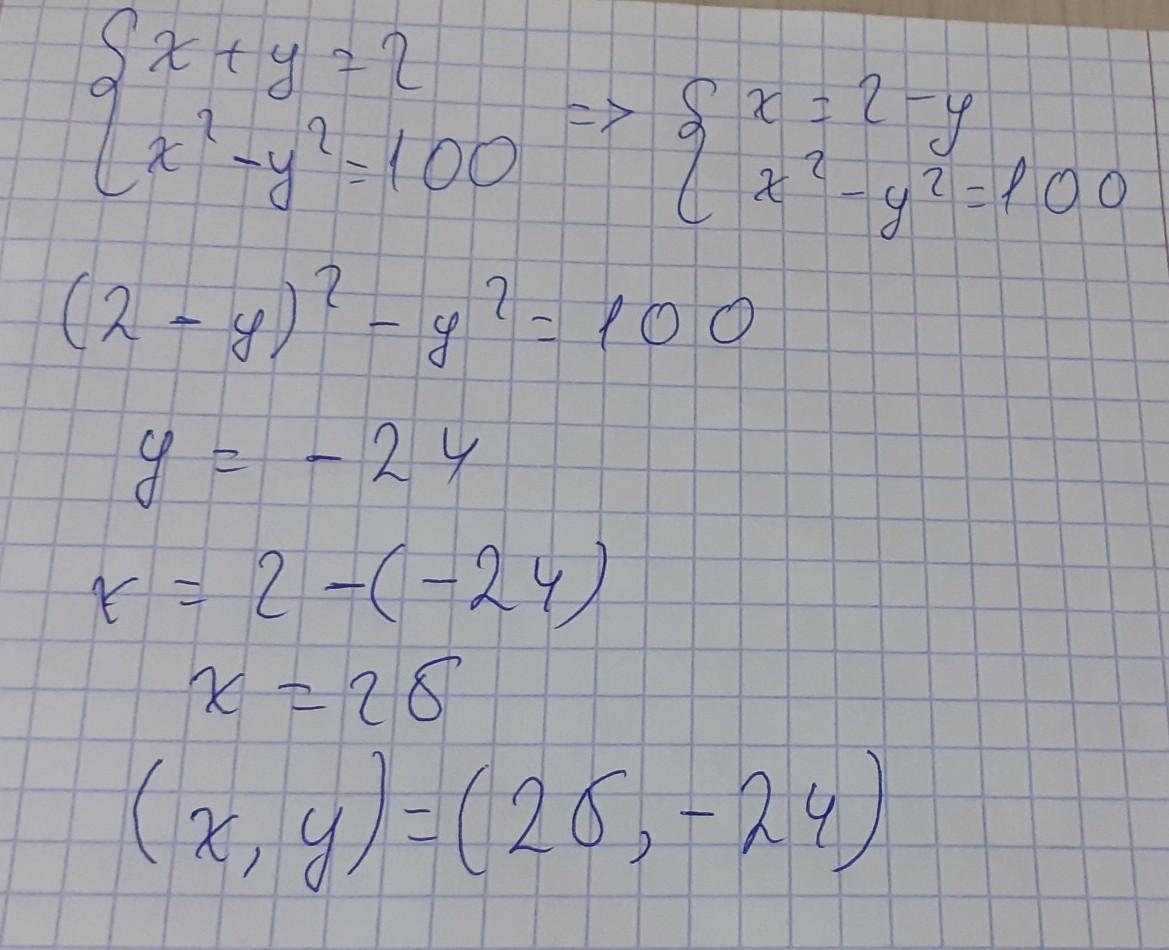 { x + y = 2
x² - y² = 100 => { x = 2 - y
x² - y² = 100
(2 - y)² - y² = 100
y = -24
x = 2 - (-24)
x = 26
(x, y) = (26, -24)